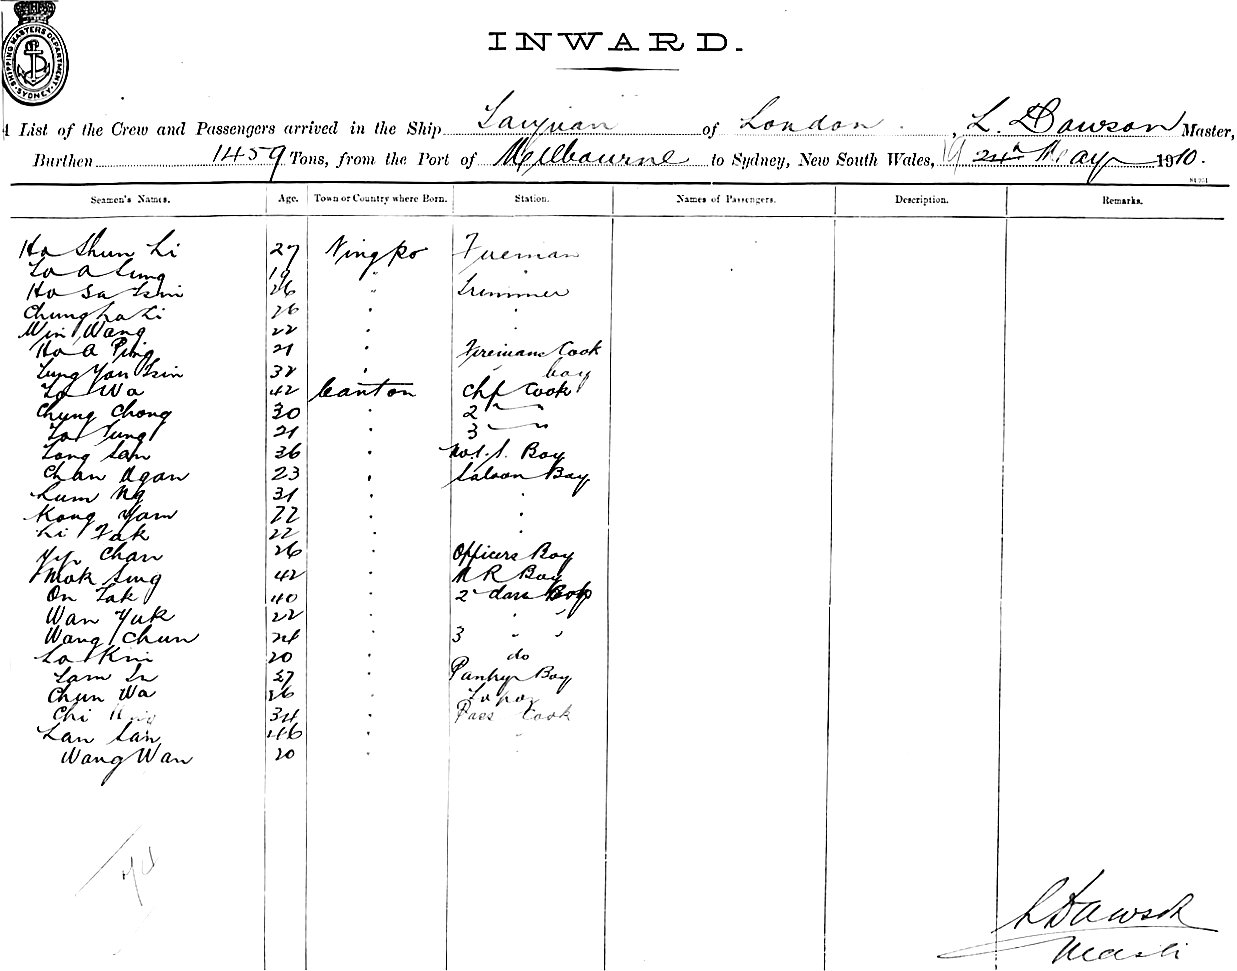 SHIPPING MASTERS DEPARTMENT
SYDNEY
INWARD.
A List of the Crew and Passengers arrived in the Ship Taiyuan of London, L. Dawson Master,
Burthen 1459 Tons, from the Port of Melbourne to Sydney, New South Wales, 24th May 1910.
Seamen's Names. Age. Town or Country where Born. Station. Names of Passengers. Description. Remarks.
Ho Shun Li 27 Ningpo Fireman
Lo A 19 "
Ho Sa 26 " Trimmer
Chung Ha Li 26 "
Min Wang 22 "
Ho A Ping 21 " Firemans Cook
Lung Yon 32 " " boy
Lo Wa 42 Canton Chf Cook
Chung Chong 30 " 2 "
Lo Tung 21 " 3 "
Long San 36 " No. 1. S. Boy
Chan Agan 23 " Saloon Boy
Lum Ng 31 " "
Kong Yam 22 " "
Li Tak 22 " "
Yip Chan 26 " Officers Boy
Mok Sing 42 " Boy
On Tak 40 " 2
Wan Yuk 22 " " "
Wang Chun 24 " 3 " "
Lo Kini 20 " do
Lam 27 " Pantry Boy
Chun Wa 26 "
Chi 34 " Pass Cook
Lan San 46 " "
Wang Wan 20 "
L Dawson
Master